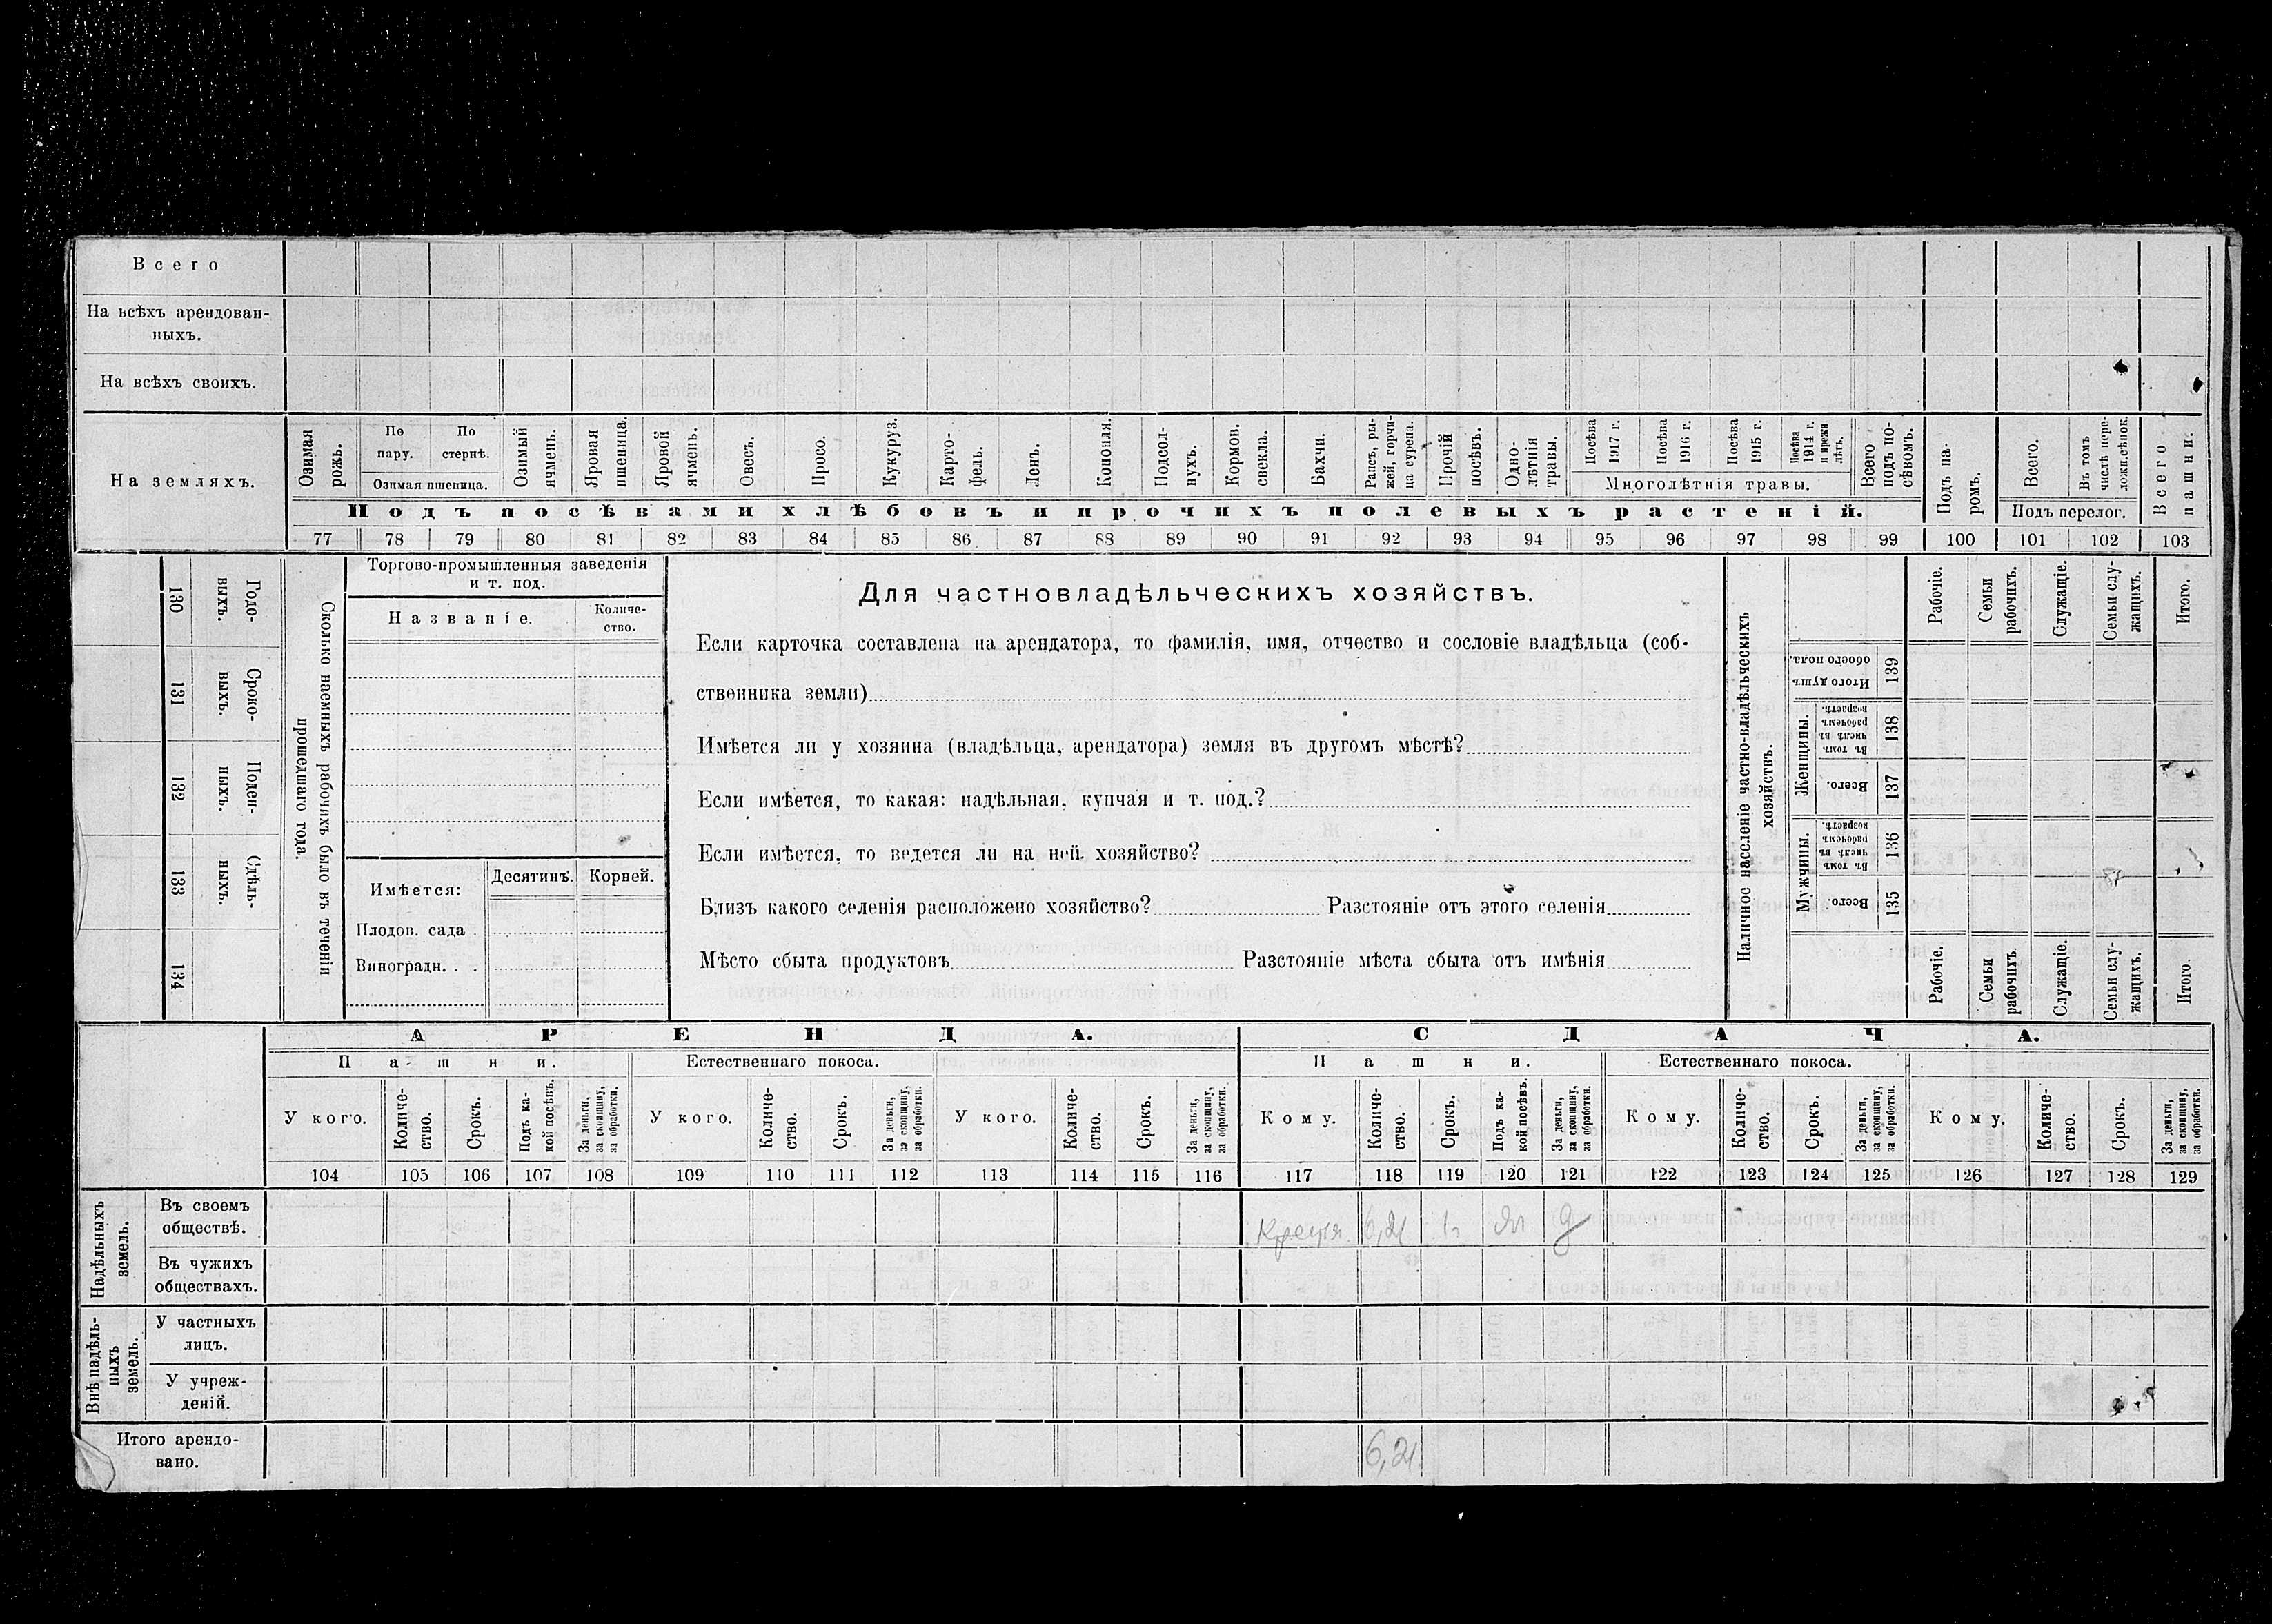 Всего
На всѣхъ арендован-
ныхъ.
На всѣхъ своихъ.
На земляхъ.
Озимая рожь.
По пару.
По стернѣ.
Озимая пшеница.
Озимый ячмень.
Яровая пшеница.
Яровой ячмень.
Овесъ.
Просо.
Кукуруз.
Карто-
фель.
Ленъ.
Конопля.
Подсол-
нухъ.
Кормов. свекла.
Бахчи.
Рапсъ, ры-
жей, горчи-
ца сурепа.
Прочій посѣвъ.
Одно-
лѣтнія травы.
Посѣва 1917 г.
Посѣва 1916 г.
Посѣва 1915 г.
Посѣва 1914 г. и прежн лѣтъ.
Многолѣтнія травы.
Всего подъ по-
сѣвомъ.
Подъ па-
ромъ.
Всего.
Въ томъ числѣ пере-
ложн.сѣнок.
Подъ перелог.
Всего пашни.
Подъ посѣвами хлѣбовъ и прочихъ полевыхъ растеній.
77 78 79 80 81 82 83 84 85 86 87 88 89 90 91 92 93 94 95 96 97 98 99 100 101 102 103
130 Годо-
выхъ.
131 Сроко-
выхъ.
132 Поден-
ныхъ.
133 Сдѣль-
ныхъ.
134
Сколько наемныхъ рабочихъ было въ теченіи
прошедшаго года.
Торгово-промышленныя заведенія
и т. под.
Названіе.
Количе-
ство.
Имѣется:
Десятинъ.
Корней.
Плодов. сада .
Виноградн. . .
Для частновладѣльческихъ хозяйствъ.
Если карточка составлена на арендатора, то фамилія, имя, отчество и сословіе владѣльца (соб-
ственника земли)
Имѣется ли у хозяина (владѣльца, арендатора) земля въ другомъ мѣстѣ?
Если имѣется, то какая: надѣльная, купчая и т. под.?
Если имѣется, то ведется ли на ней хозяйство?
Близъ какого селенія расположено хозяйство? Разстояніе отъ этого селенія
Мѣсто сбыта продуктовъ Разстояніе мѣста сбыта отъ имѣнія
Наличное населеніе частно-владѣльческихъ
хозяйствъ.
Рабочіе.
Семьи рабочихъ.
Служащіе.
Семьи слу-
жащихъ.
Итого.
Итого душъ обоего пола. 139
Женщины.
Въ томъ числѣ въ рабочемъ возрастѣ. 138
Всего. 137
Мужчины.
Въ томъ числѣ въ рабочемъ возрастѣ. 136
Всего. 135
Рабочіе.
Семьи рабочихъ.
Служащіе.
Семьи слу-
жащихъ.
Итого.
АРЕНДА. СДАЧА.
Пашни. Естественнаго покоса. Пашни. Естественнаго покоса.
У кого.
Количе-
ство.
Срокъ.
Подъ ка-
кой посѣвъ.
За деньги, за скопщину, за обработки.
У кого.
Количе-
ство.
Срокъ.
За деньги, за скопщину, за обработки.
У кого.
Количе-
ство.
Срокъ.
За деньги, за скопщину, за обработки.
Кому.
Количе-
ство.
Срокъ.
Подъ ка-
кой посѣвъ.
За деньги, за скопщину, за обработки.
Кому.
Количе-
ство.
Срокъ.
За деньги, за скопщину, за обработки.
Кому.
Количе-
ство.
Срокъ.
За деньги, за скопщину, за обработки.
104 105 106 107 108 109 110 111 112 113 114 115 116 117 118 119 120 121 122 123 124 125 126 127 128 129
Надѣльныхъ земель.
Въ своемъ
обществѣ.
6,21
Въ чужихъ
обществахъ.
Внѣ надѣль-
ныхъ земель.
У частныхъ
лицъ.
У учреж-
деній.
Итого арендо-
вано.
6,21